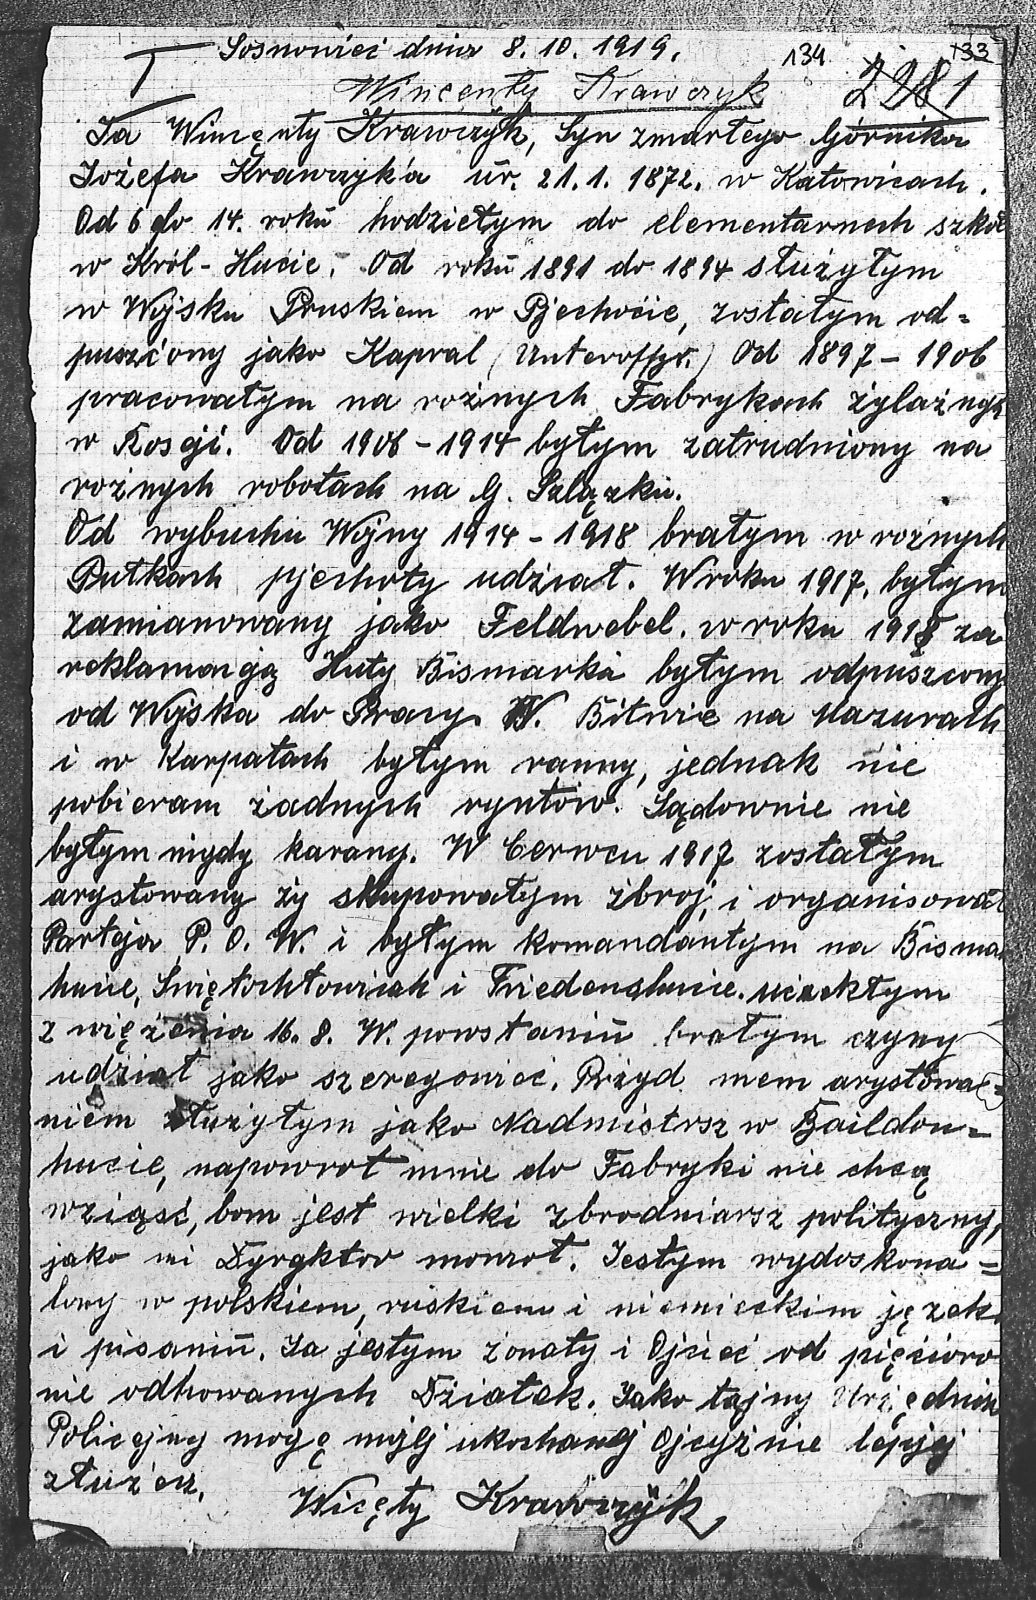 Sosnowiec dnia 8. 10. 1919.
134
133
Wincenty Krawczyk
Ja Wincęnty Krawczyk, Syn zmartego Górnika
Jożefa Krawczyk'a ur. 21. 1. 1872. w Katowicach.
Od 6 do 14. roku hodziełym do elementarnech szkół
w Król-Hucie. Od roku 1891 do 1894 służyłym
w Wojsku Pruskiem w Pjechoćie, zostałym od=
puszćony jako Kapral (Unteroffzr.) Od 1897 - 1906
pracowałym na rożnych Fabrykach żylażnych
w Rosji. Od 1906 - 1914 byłym zatrudniony na
rożnych robotach na G. Szlązku.
Od wybuchu Wojny 1914 - 1918 brałym w rożnych
Pułkach pjechoty udźiał. W roku 1917. byłym
zamianowany jako Feldwebel. w roku 1918 za
reklamacją Huty Bismarka byłym odpuszcony
od Wojska do Pracy. W. Bitwie na Mazurach
i w Karpatach byłym ranny, jednak nie
pobieram żadnych ryntów. Sądownie nie
byłym nigdy karany. W Cerwcu 1917 zostałym
arystowany ży skupowałym zbroj, i organisował
Parteja P. O. W. i byłym komandantym na Bisma
hucie, Swiętochłowicach i Friedenshucie. ucieklym
z więzenia 16. 8. W. powstaniu brałym czyny
udźiał jako szeregowieć. Prżyd mem arystowa=
niem służyłym jako Nadmistrsz w Baildon=
hucie, napowrot mnie do Fabryki nie chcą
wziąść, bom jest wielki zbrodniarsz polityczny,
jako mi Dyrektor mowioł. Jestym wydoskona=
lony w polskiem, ruskiem i niemieckim języku
i pisaniu. Ja jestym żonaty i Ojcieć od pięcioro
nie odhowanych Dźiatek. Jako tajny Urzędnik
Policejny mogę mojej ukochanej Ojcyżnie lepjej
złużecz.
Wicęty Krawczyk